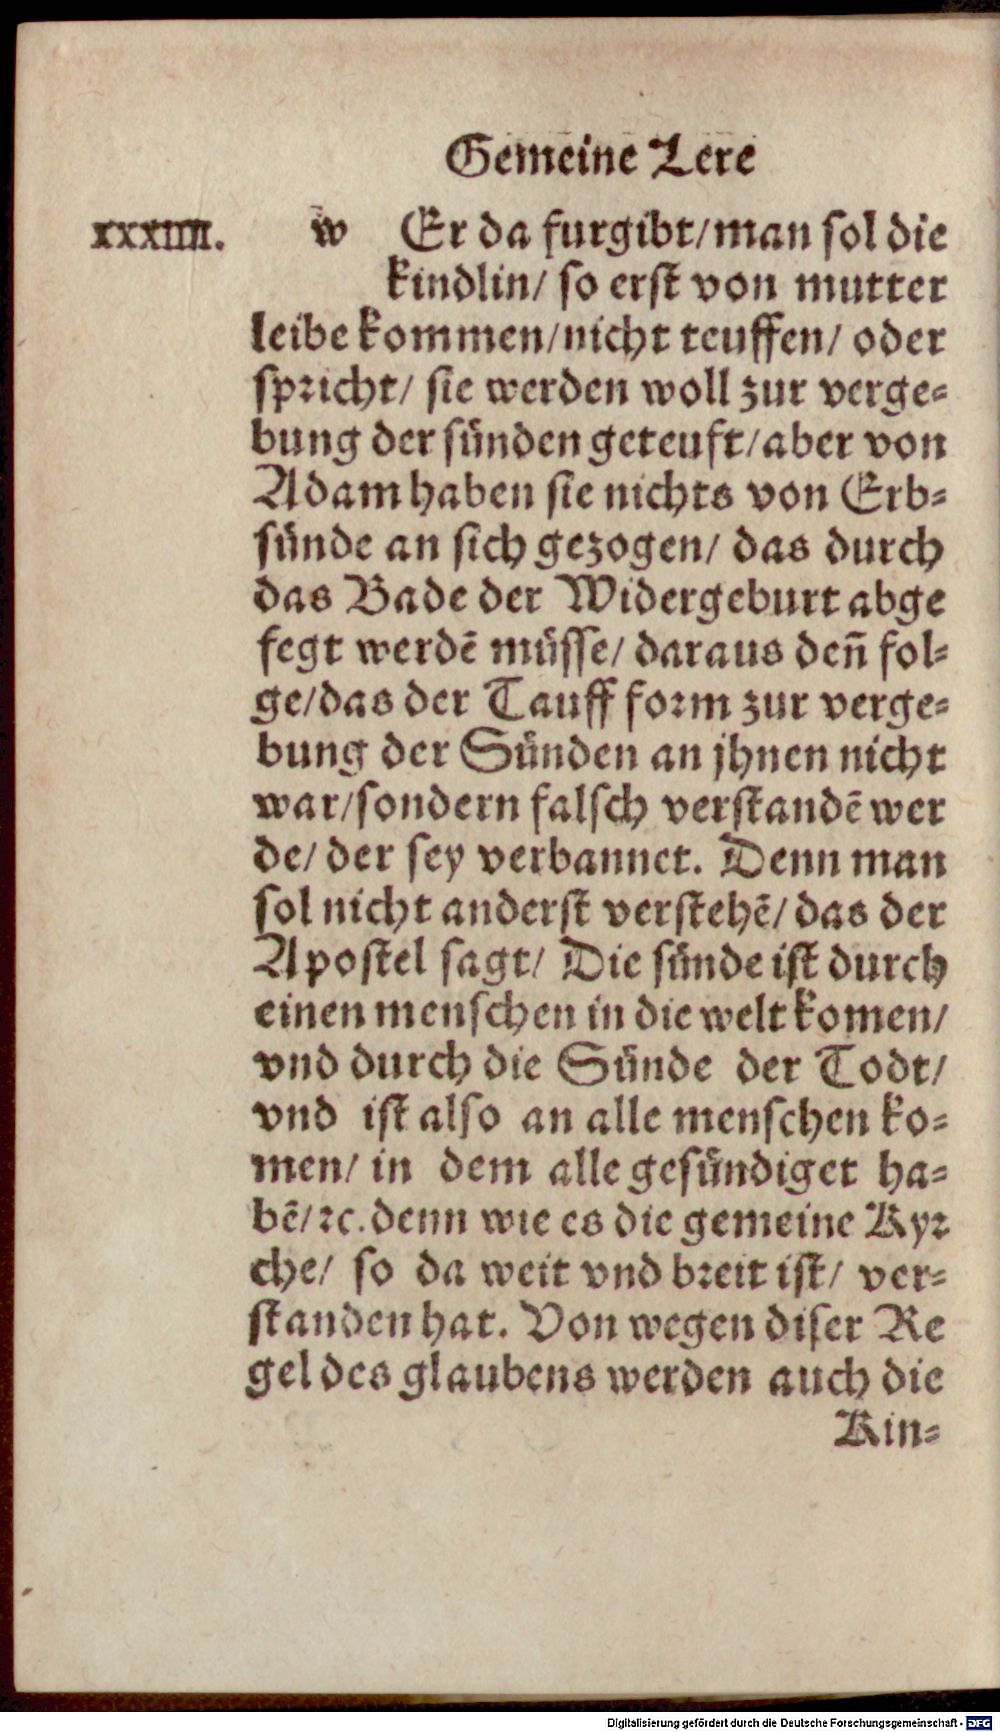 Gemeine Lere
XXXIIII. w Er da furgibt/man sol die
kindlin/ so erst von mutter
leibe kommen/nicht teuffen/ oder
spricht/ sie werden woll zur verge=
bung der sünden geteuft/aber von
Adam haben sie nichts von Erb=
sünde an sich gezogen/ das durch
das Bade der Widergeburt abge
fegt werdē müsse/ daraus deñ fol=
ge/das der Tauff form zur verge=
bung der Sünden an jhnen nicht
war/sondern falsch verstandē wer
de/ der sey verbannet. Denn man
sol nicht anderst verstehē/ das der
Apostel sagt/ Die sünde ist durch
einen menschen in die welt komen/
vnd durch die Sünde der Todt/
vnd ist also an alle menschen ko=
men/ in dem alle gesündiget ha=
bē/ꝛc. denn wie es die gemeine Kyr
che/ so da weit vnd breit ist/ ver=
standen hat. Von wegen diser Re
gel des glaubens werden auch die
Kin=
Digitalisierung gefördert durch die Deutsche Forschungsgemeinschaft - DFG